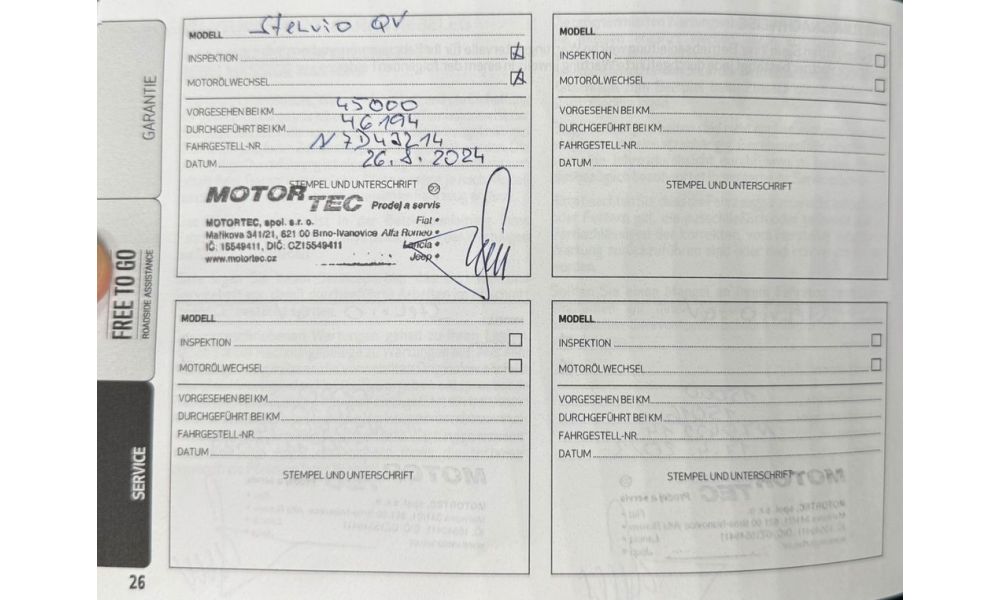 GARANTIE
FREE TO GO
ROADSIDE ASSISTANCE
SERVICE
MODELL Stelvio QV
INSPEKTION
MOTORÖLWECHSEL
VORGESEHEN BEI KM 45000
DURCHGEFÜHRT BEI KM 46194
FAHRGESTELL-NR. N7D43214
DATUM 26.8.2024
STEMPEL UND UNTERSCHRIFT
MOTOR TEC Prodej a servis
MOTORTEC, spol. s r. o. Fiat •
Maříkova 341/21, 621 00 Brno-Ivanovice Alfa Romeo •
IČ: 15549411, DIČ: CZ15549411 Lancia •
www.motortec.cz Jeep •
MODELL
INSPEKTION
MOTORÖLWECHSEL
VORGESEHEN BEI KM
DURCHGEFÜHRT BEI KM
FAHRGESTELL-NR.
DATUM
STEMPEL UND UNTERSCHRIFT
MODELL
INSPEKTION
MOTORÖLWECHSEL
VORGESEHEN BEI KM
DURCHGEFÜHRT BEI KM
FAHRGESTELL-NR.
DATUM
STEMPEL UND UNTERSCHRIFT
MODELL
INSPEKTION
MOTORÖLWECHSEL
VORGESEHEN BEI KM
DURCHGEFÜHRT BEI KM
FAHRGESTELL-NR.
DATUM
STEMPEL UND UNTERSCHRIFT
26